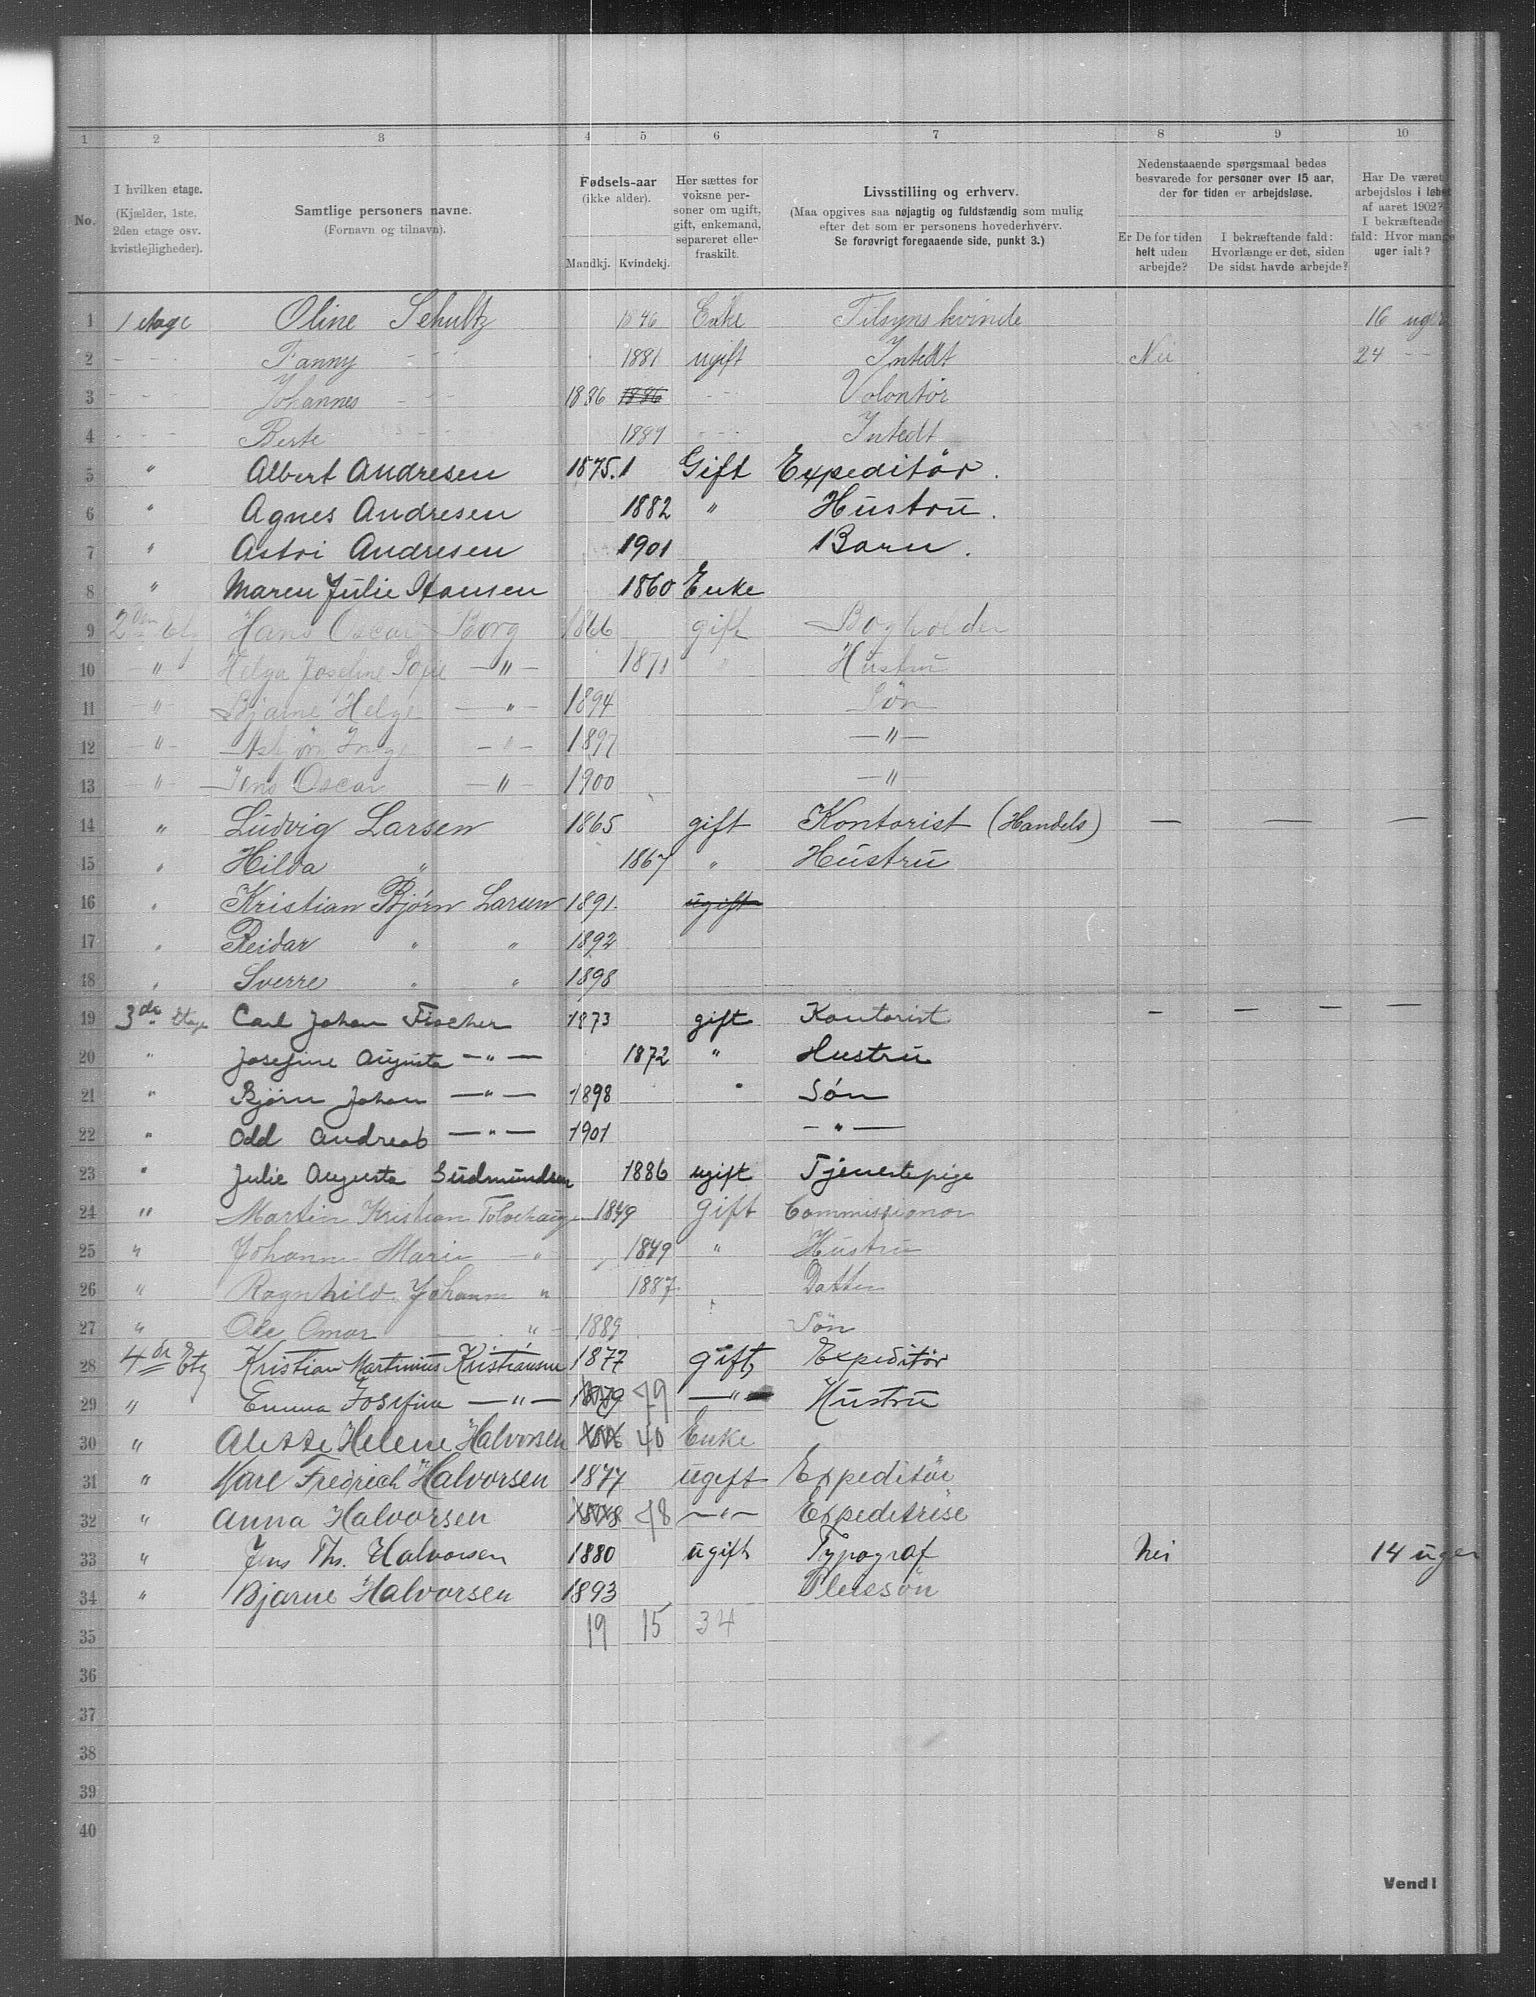 1 2 3 4 5 6 7 8 9 10
No.
I hvilken etage.
(Kjælder, 1ste,
2den etage osv.
kvistlejligheder).
Samtlige personers navne.
(Fornavn og tilnavn).
Fødsels-aar
(ikke alder).
Mandkj. Kvindekj.
Her sættes for
voksne per-
soner om ugift,
gift, enkemand,
separeret eller
fraskilt.
Livsstilling og erhverv.
(Maa opgives saa nøjagtig og fuldstændig som mulig
efter det som er personens hovederhverv.
Se forøvrigt foregaaende side, punkt 3.)
Nedenstaaende spørgsmaal bedes
besvarede for personer over 15 aar,
der for tiden er arbejdsløse.
Er De for tiden
helt uden
arbejde?
I bekræftende fald:
Hvorlænge er det, siden
De sidst havde arbejde?
Har De været
arbejdsløs i løbet
af aaret 1902?
I bekræftende
fald: Hvor mange
uger ialt?
1 1 etage Oline Schultz 1846 Enke Tilsynskvinde 16 uger
2 - - - Fanny - - - 1881 ugift Intedt Nei 24 - -
3 - - Johannes - - - 1886 1886 - - Volontør
4 - - - Berte - - - - 1889 - - - Intedt
5 " Albert Andresen 1875.1 Gift Expeditör.
6 " Agnes Andresen 1882 " Hustru.
7 " Astri Andresen 1901 Barn.
8 " Maren Julie Hansen 1860 Enke
9 2den Etg Hans Oscar Borg 1866 gift Bogholder
10 - " - Helga Josefine - " - 1871 " Hustru
11 - " - Bjarne Helge - " - 1894 Søn
12 - " - - " - 1897 - " -
13 - " - Jens Oscar - " - 1900 - " -
14 " Ludvig Larsen 1865 gift Kontorist (Handels) — — —
15 " Hilda " 1867 " Hustru
16 " Kristian Bjørn Larsen 1891 ugift
17 " Reidar " " 1892
18 " Sverre " " 1898
19 3de Etage Carl Johan Fischer 1873 gift Kontorist — — — —
20 " Josefine Augusta — " — 1872 " Hustru
21 " Bjørn Johan — " — 1898 " Søn
22 " Odd Andreas — " — 1901 — " —
23 " Julie Augusta Gudmundsen 1886 ugift Tjenestepige
24 " Martin Kristian 1849 Gift Commissionær
25 " Johanne Marie - " 1849 " Hustru
26 " Ragnhild Johanne " 1887 Datter
27 " Ole Omar " - 1889 Søn
28 4de Etg Kristian Martinius Kristiansen 1877 gift Expeditör
29 " Emma Josefine — " — 1879 79 — " — Hustru
30 " Alette Helene Halvorsen 40 Enke
31 " Karl Fredrich Halvorsen 1877 ugift Expeditör
32 " Anna Halvorsen 1878 78 — " — Expeditrise
33 " Jens Th. Halvorsen 1880 ugift Typograf Nei 14 uger
34 " Bjarne Halvorsen 1893 Pleiesøn
35 19 15 34
36
37
38
39
40
Vend!